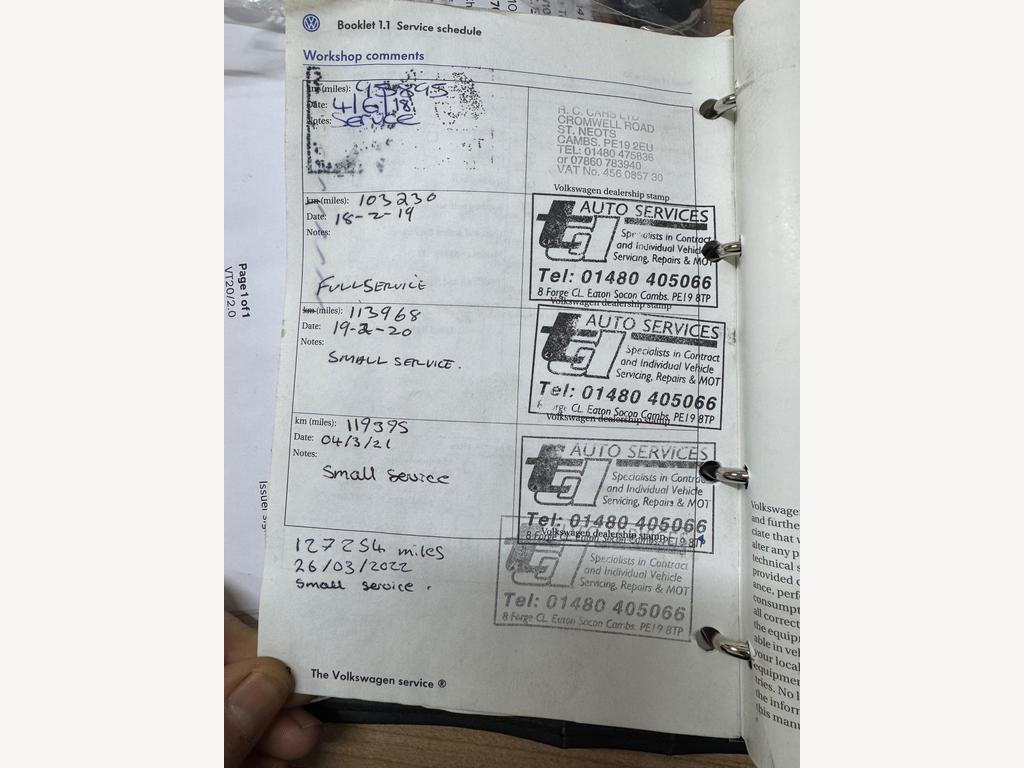 Booklet 1.1 Service schedule
Workshop comments
km (miles): 95895
Date: 4/6/18
Notes: Service
R. C. CARS LTD
CROMWELL ROAD
ST. NEOTS
CAMBS. PE19 2EU
TEL: 01480 475836
or 07860 783940
VAT No. 456 0857 30
Volkswagen dealership stamp
km (miles): 103230
Date: 18-2-19
Notes:
FULL SERVICE
AUTO SERVICES
Specialists in Contract
and Individual Vehicle
Servicing, Repairs & MOT
Tel: 01480 405066
8 Forge CL. Eaton Socon Cambs. PE19 8TP
Volkswagen dealership stamp
km (miles): 113968
Date: 19-2-20
Notes:
SMALL SERVICE.
AUTO SERVICES
Specialists in Contract
and Individual Vehicle
Servicing, Repairs & MOT
Tel: 01480 405066
CL. Eaton Socon Cambs. PE19 8TP
Volkswagen dealership stamp
km (miles): 119395
Date: 04/3/21
Notes:
Small service
AUTO SERVICES
Specialists in Contract
and Individual Vehicle
Servicing, Repairs & MOT
Tel: 01480 405066
8 Forge CL. Eaton Socon Cambs. PE19 8TP
Volkswagen dealership stamp
127254 miles
26/03/2022
Small service.
Specialists in Contract
and Individual Vehicle
Servicing, Repairs & MOT
Tel: 01480 405066
8 Forge CL. Eaton Socon Cambs. PE19 8TP
The Volkswagen service ®
Page 1 of 1
VT20/2.0
Volkswagen
and furthe
ciate that
alter any p
technical s
provided
ance, perf
consumpt
all correct
the equip
able in veh
your local
equipmen
tries. No l
the inform
this manu